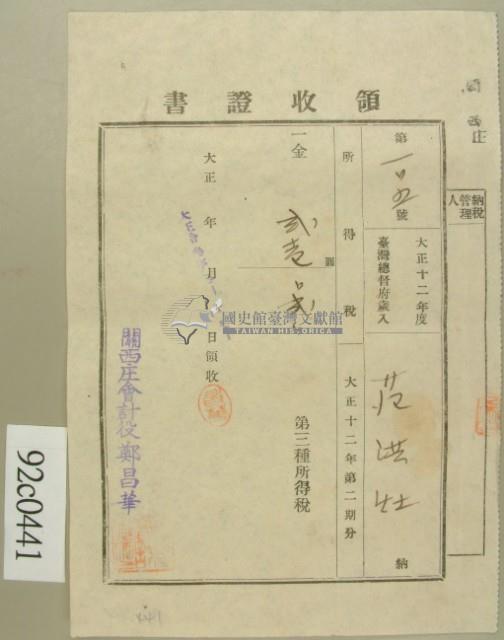 領收證書
第一〇五號
大正十二年度
臺灣總督府歲入
范洪灶 納
所得稅
大正十二年第二期分
一金
圓
第三種所得稅
大正 年 月 日領收
關西庄會計役 鄭昌華
納稅管理人
庄
國史館臺灣文獻館
TAIWAN HISTORICA
92c0441